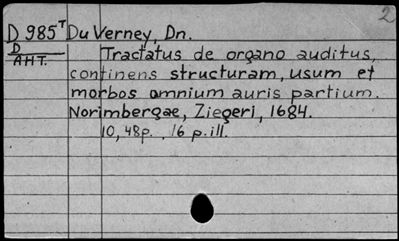 2
D 985ᵀ Du Verney, Dn.
D Tractatus de organo auditus,
AHT. continens structuram, usum et
morbos omnium auris partium.
Norimbergae, Ziegeri, 1684.
10, 48p., 16 p. ill.